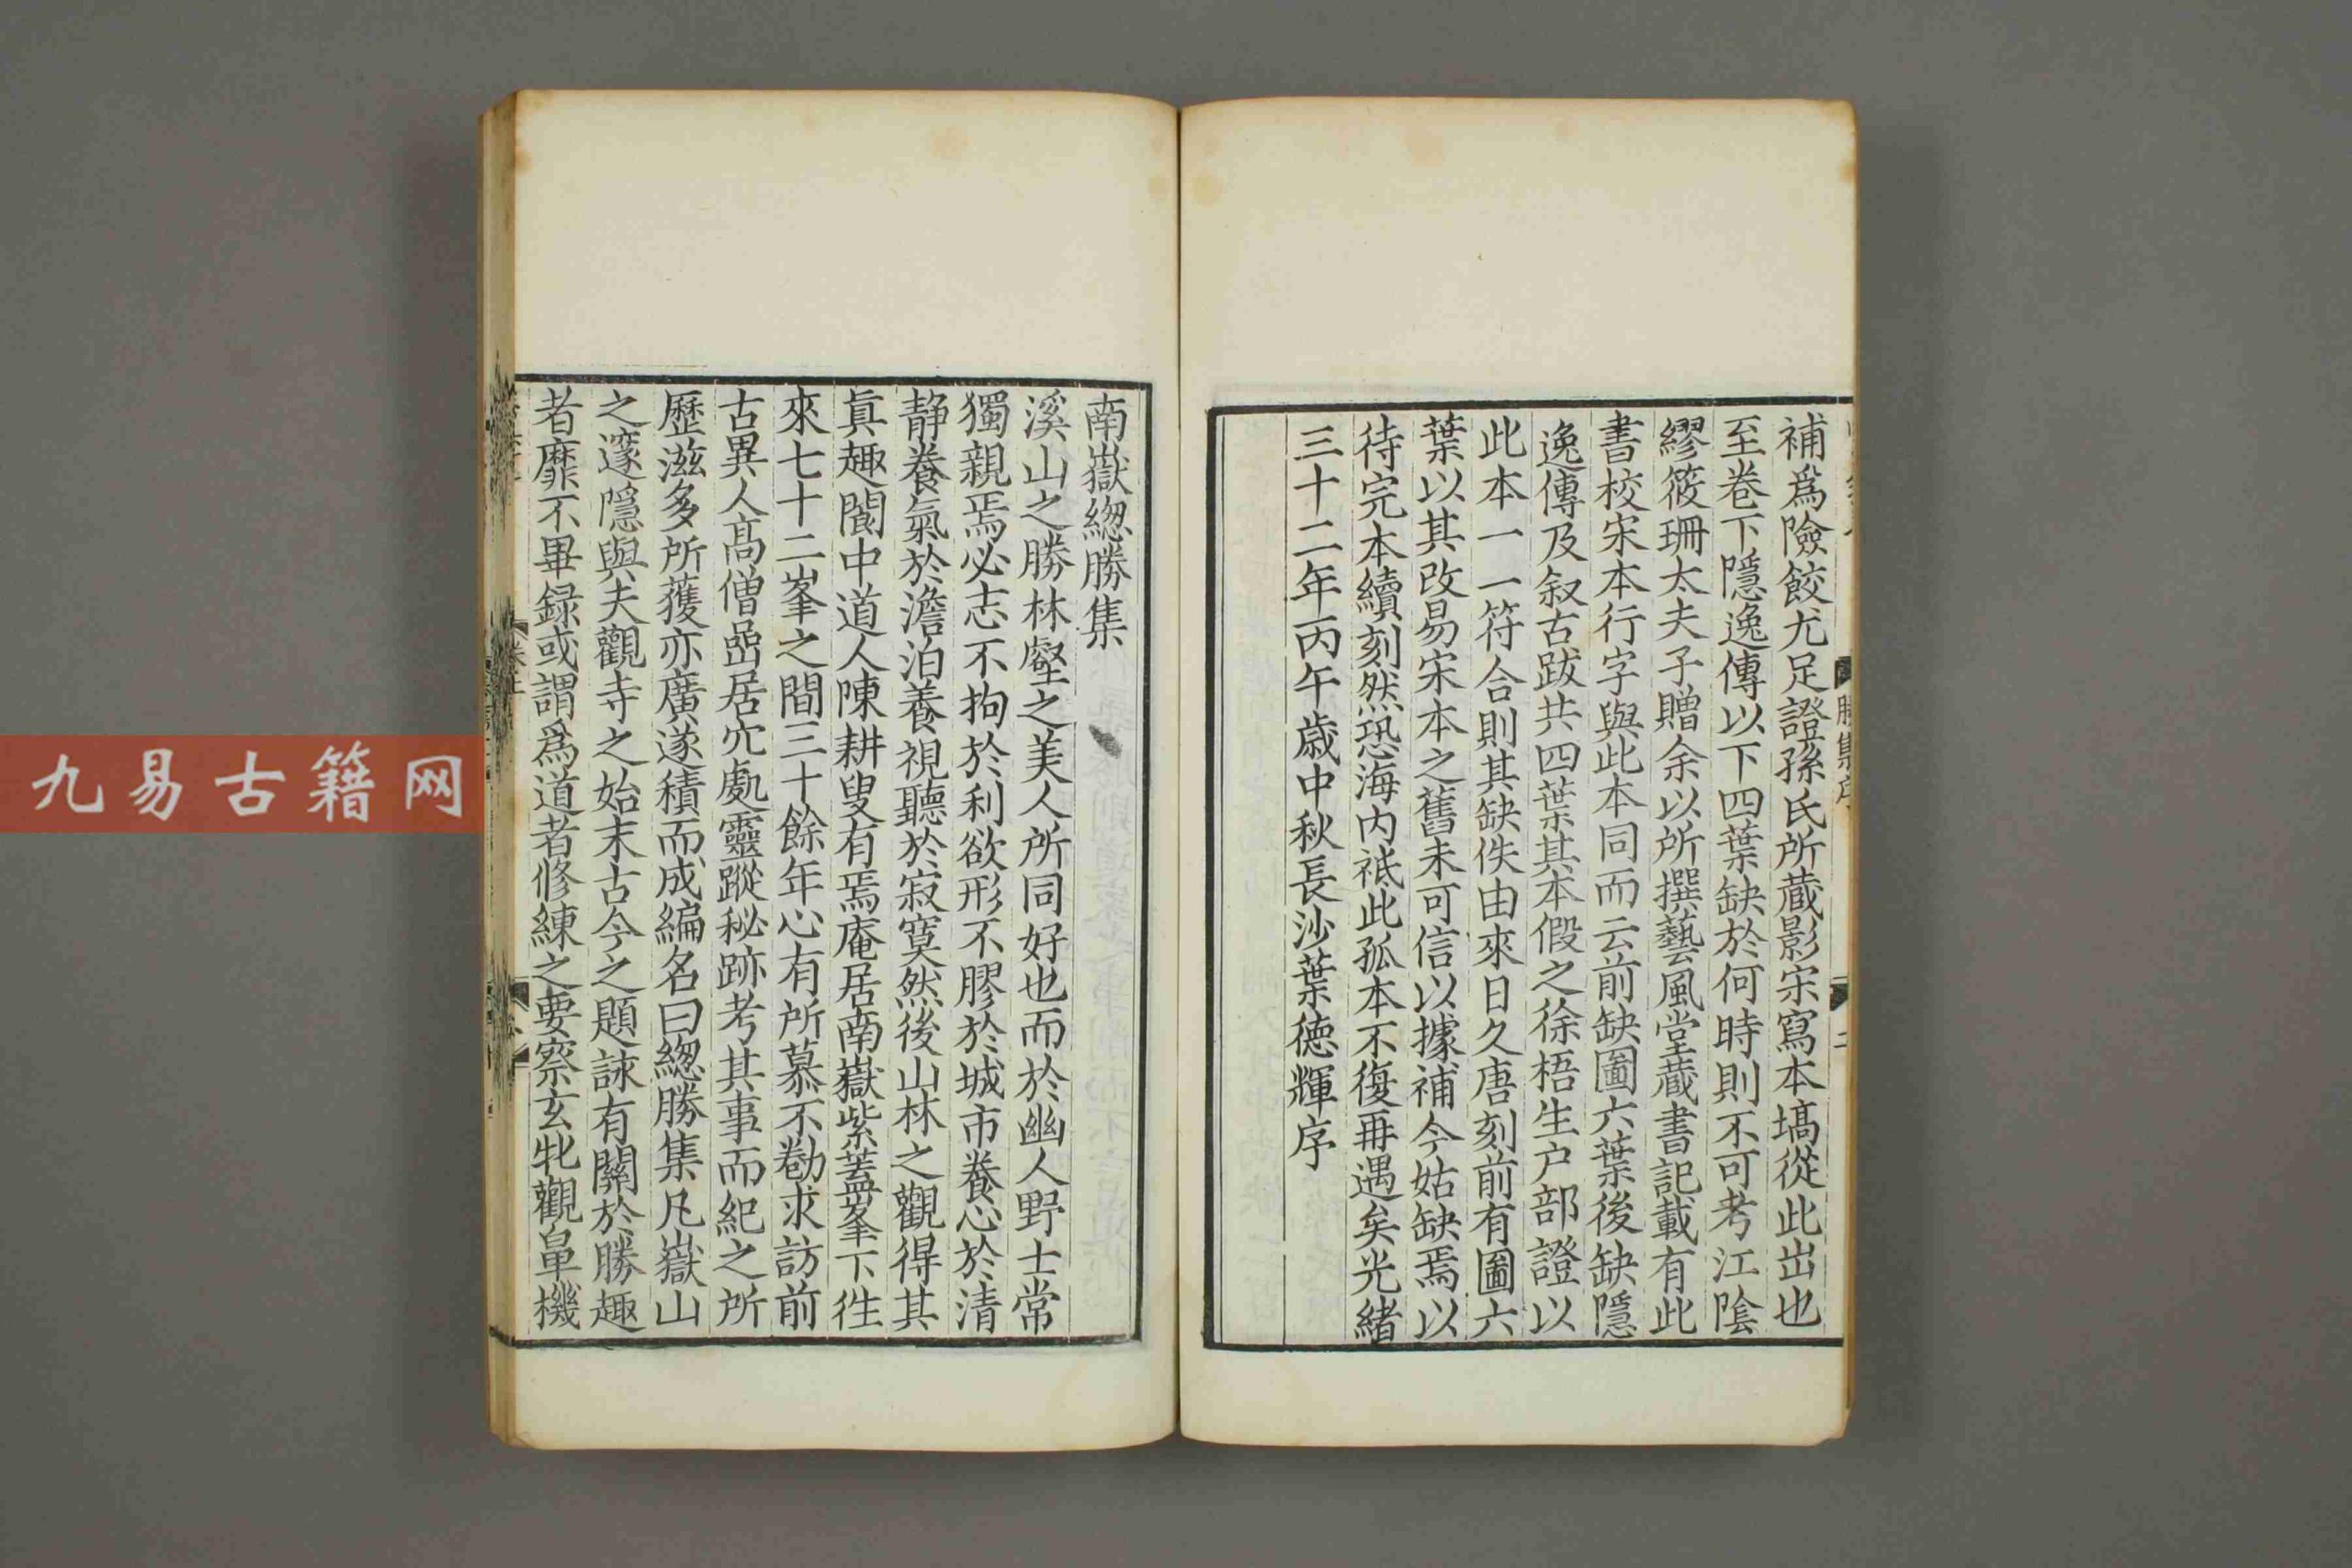 補爲險餃尤足證孫氏所蔵影宋寫本塙從此出也
至卷下隱逸傳以下四葉缺於何時則不可考江陰
繆筱珊太夫子贈余以所撰藝風堂蔵書記載有此
書校宋本行字與此本同而云前缺圖六葉後缺隱
逸傳及叙古跋共四葉其本假之徐梧生户部證以
此本一一符合則其缺佚由來日久唐刻前有圖六
葉以其改易宋本之舊未可信以據補今姑缺焉以
待完本續刻然恐海内祗此孤本不復再遇矣光緒
三十二年丙午歲中秋長沙葉德輝序
南嶽緫勝集
溪山之勝林壑之美人所同好也而於幽人野士常
獨親焉必志不拘於利欲形不膠於城市養心於清
静養氣於澹泊養視聽於寂寞然後山林之觀得其
眞趣閬中道人陳耕叟有焉庵居南嶽紫蓋峯下徃
來七十二峯之間三十餘年心有所慕不勌求訪前
古異人髙僧嵒居穴處靈蹤秘跡考其事而紀之所
歷滋多所獲亦廣遂積而成編名曰緫勝集凡嶽山
之邃隱與夫觀寺之始末古今之題詠有關於勝趣
者靡不畢録或謂爲道者修練之要察玄牝觀皐機
勝集序
二
卷上
九易古籍网